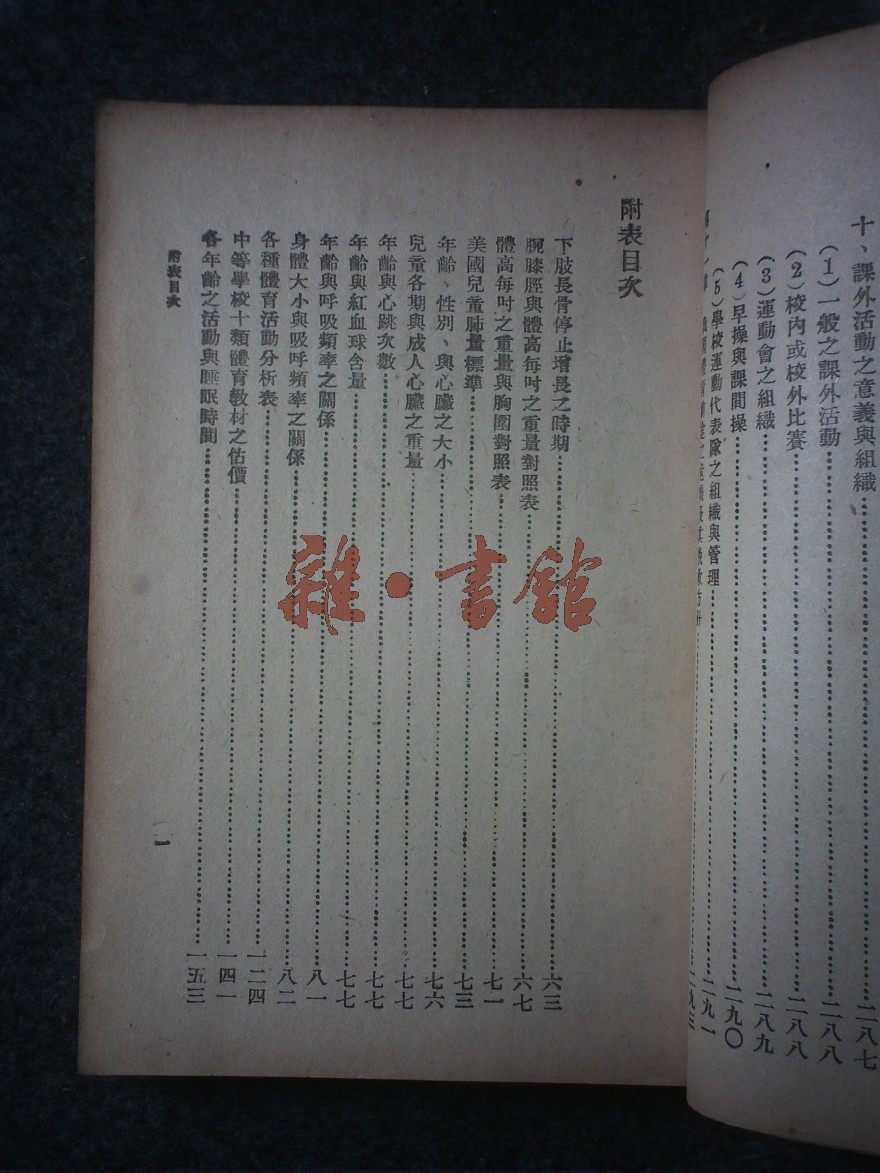 十、課外活動之意義與組織……二八七
(1)一般之課外活動……二八八
(2)校內或校外比賽……二八八
(3)運動會之組織……二八九
(4)早操與課間操……二九〇
(5)學校運動代表隊之組織與管理……二九一
附表目次
下肢長骨停止增長之時期……六三
腕膝脛與體高每吋之重量對照表……六七
體高每吋之重量與胸圍對照表……七一
美國兒童肺量標準……七三
年齡、性別、與心臟之大小……七六
兒童各期與成人心臟之重量……七七
年齡與心跳次數……七七
年齡與紅血球含量……七七
年齡與呼吸頻率之關係……八一
身體大小與吸呼頻率之關係……八二
各種體育活動分析表……一二四
中等學校十類體育教材之估價……一四一
各年齡之活動與睡眠時間……一五三
附表目次
一
雜·書館